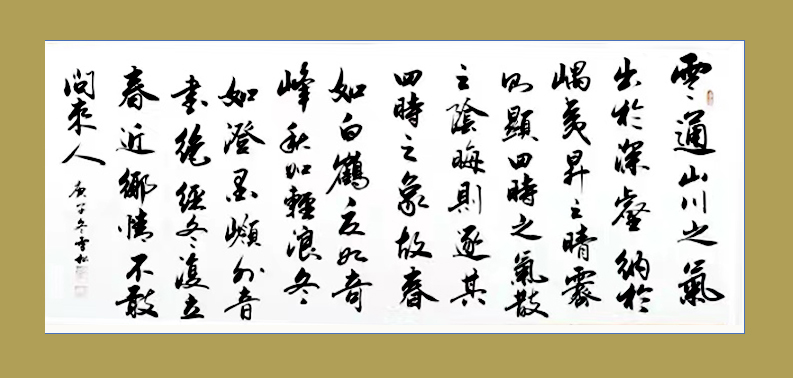 雲之通山川之氣
出於深壑納於
嵎夷昇之晴霽
則顯四時之氣散
之陰晦則逐其
四時之象故春
如白鶴夏如奇
峰秋如輕浪冬
如澄墨嶺外音
書絕經冬復立
春近鄉情不敢
問來人
庚子冬雪松